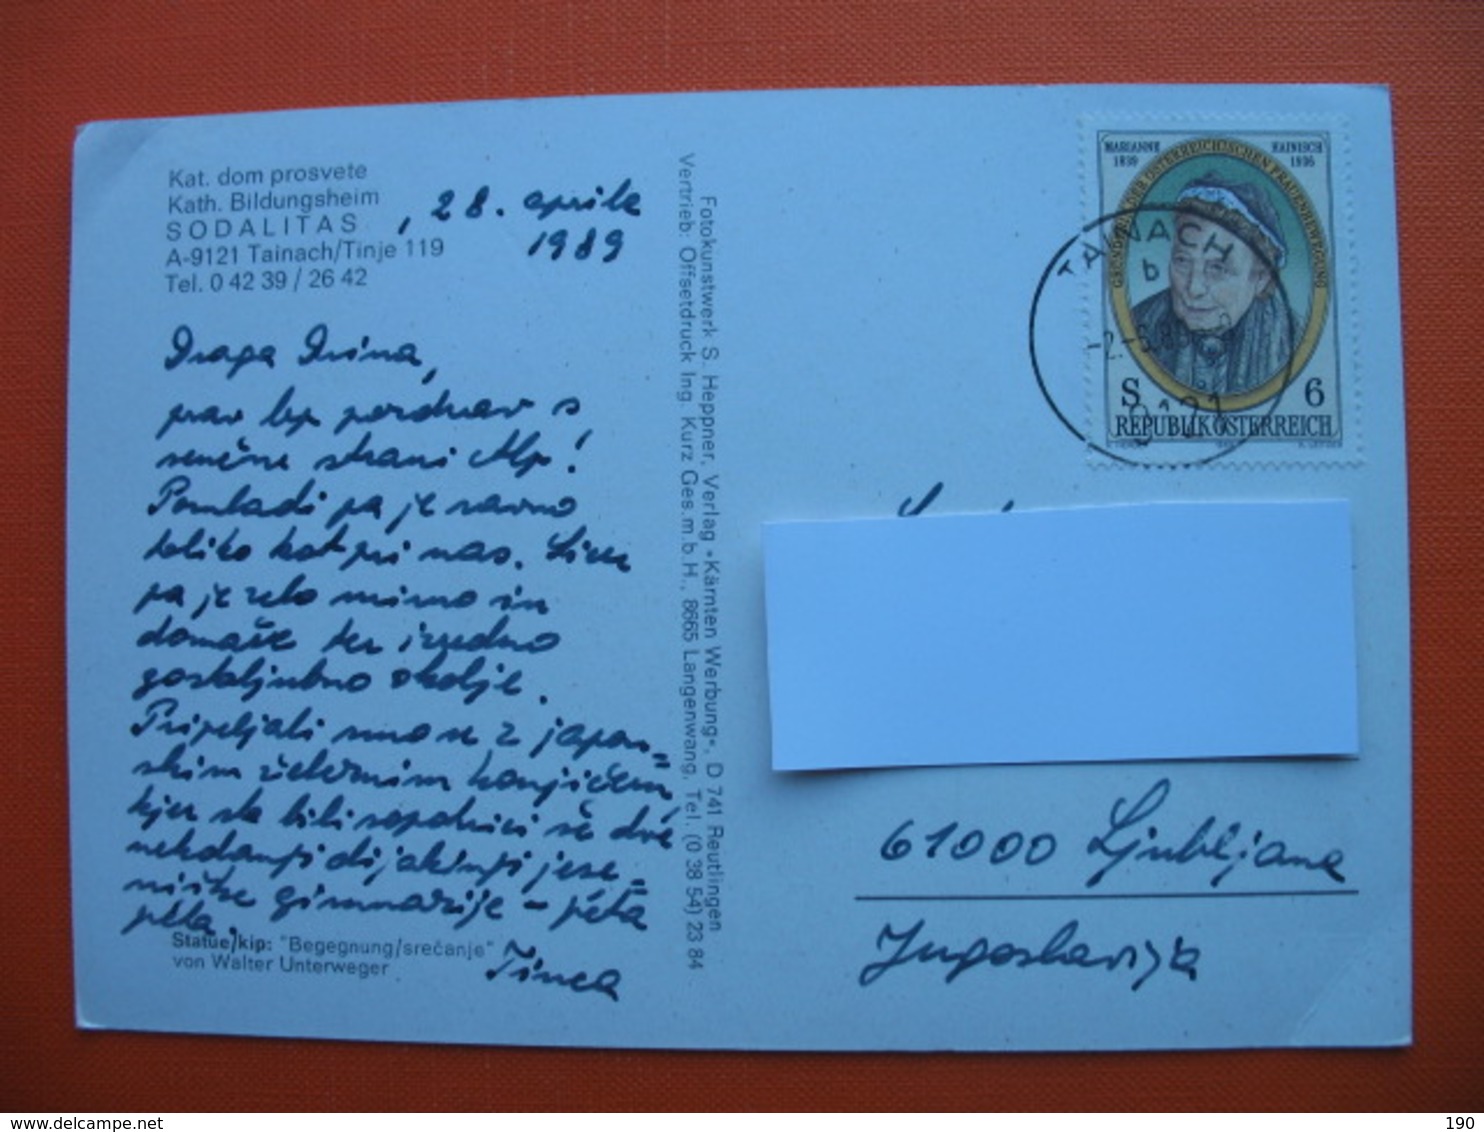 Kat. dom prosvete
Kath. Bildungsheim
SODALITAS
A-9121 Tainach/Tinje 119
Tel. 0 42 39 / 26 42
, 28. aprila
1989
Draga Irina,
prav lep pozdrav s
senčne strani Alp!
Pomladi pa je ravno
toliko kot pri nas. Sicer
pa je zelo mirno in
domače ter izredno
gostoljubno okolje.
Pripeljali smo se z japon=
skim železnim konjičem,
kjer sta bili sopotnici še dve
nekdanji dijakinji jese=
niške gimnazije - peta
pela.
Tinca
Statue/kip: "Begegnung/srečanje"
von Walter Unterweger
Fotokunstwerk S. Heppner, Verlag "Kärnten Werbung", D 741 Reutlingen
Vertrieb: Offsetdruck Ing. Kurz Ges.m.b.H., 8665 Langenwang, Tel. (0 38 54) 23 84
MARIANNE HAINISCH
1839 1936
GRÜNDERIN DER ÖSTERREICHISCHEN FRAUENBEWEGUNG
S 6
REPUBLIK ÖSTERREICH
TAINACH
b
9121
61000 Ljubljana
Jugoslavija
190
delcampe.net